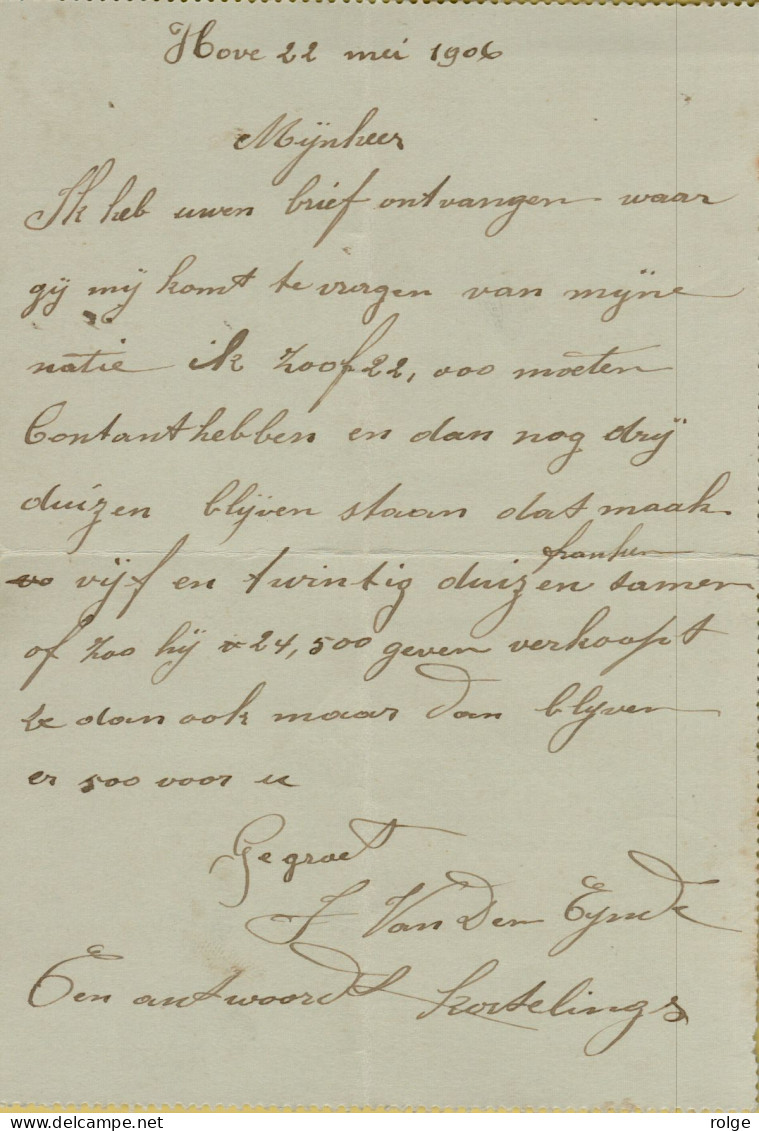 Hove 22 mei 1906
Mijnheer
Ik heb uwen brief ontvangen waar
gij mij komt te vragen van mijne
natie ik zoof 22,000 moeten
Contant hebben en dan nog drij
duizen blijven staan dat maak
franken
vijf en twintig duizen samen
of zoo hij 24,500 geven verkoopt
dan ook maar dan blijven
er 500 voor u
Gegroet
J Van Den Eynde
Een antwoordt kortelings
rolge